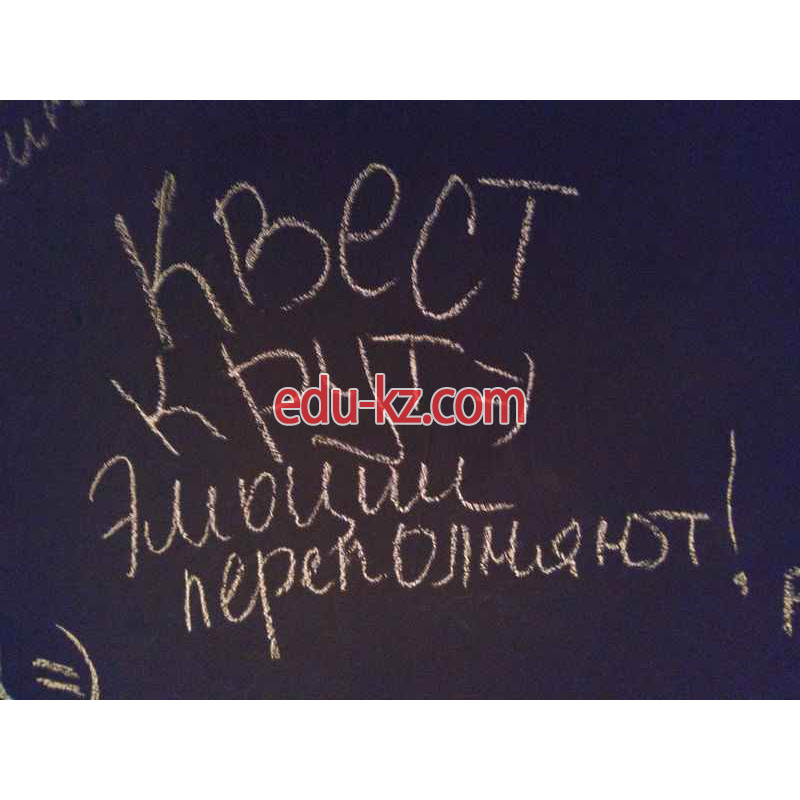 Квест
edu-kz.com
Эмоции
переполняют!
=)